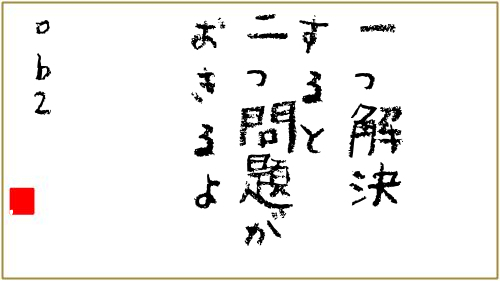 一つ解決
すると
二つ問題が
おきるよ
ob2